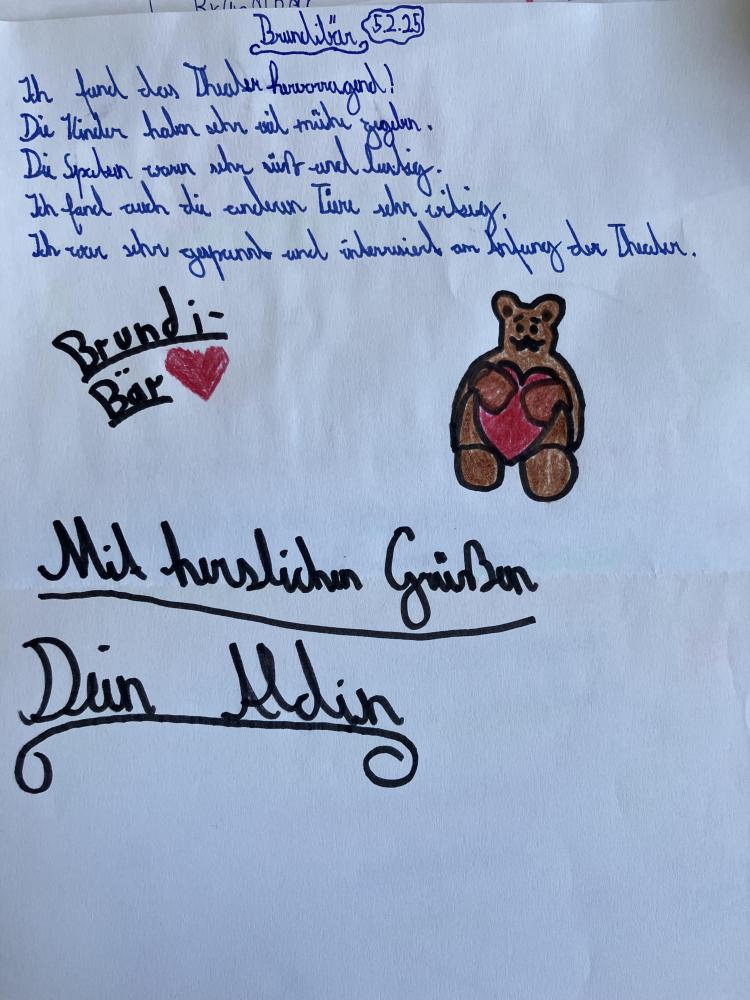 Brundibär 5.2.25
Ich fand das Theater hervorragend!
Die Kinder haben sehr viel mühe gegeben.
Die Spatzen waren sehr süß und lustig.
Ich fand auch die anderen Tiere sehr witzig.
Ich war sehr gespannt und interessiert am Anfang der Theater.
Brundi-
Bär
Mit herzlichen Grüßen
Dein Aldin